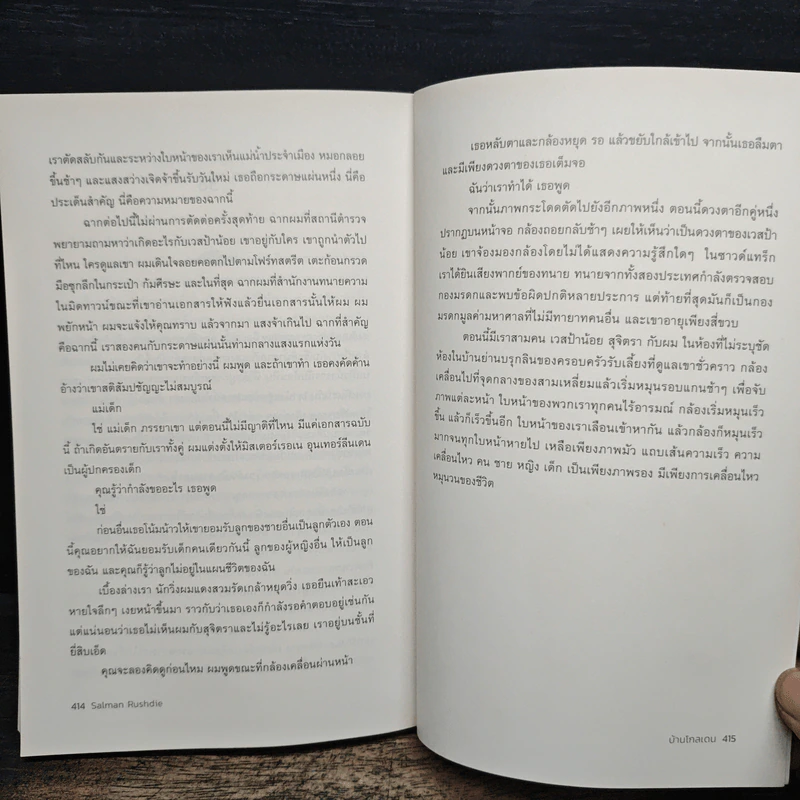 เราตัดสลับกันและระหว่างใบหน้าของเราเห็นแม่น้ำประจำเมือง หมอกลอย
ขึ้นช้าๆ และแสงสว่างเจิดจ้าขึ้นรับวันใหม่ เธอถือกระดาษแผ่นหนึ่ง นี่คือ
ประเด็นสำคัญ นี่คือความหมายของฉากนี้
ฉากต่อไปนี้ไม่ผ่านการตัดต่อครั้งสุดท้าย ฉากผมที่สถานีตำรวจ
พยายามถามหาว่าเกิดอะไรกับเวสป้าน้อย เขาอยู่กับใคร เขาถูกนำตัวไป
ที่ไหน ใครดูแลเขา ผมเดินใจลอยคอตกไปตามโฟร์ทสตรีต เตะก้อนกรวด
มือซุกลึกในกระเป๋า ก้มศีรษะ และในที่สุด ฉากผมที่สำนักงานทนายความ
ในมิดทาวน์ขณะที่เขาอ่านเอกสารให้ฟังแล้วยื่นเอกสารนั้นให้ผม ผม
พยักหน้า ผมจะแจ้งให้คุณทราบ แล้วจากมา แสงจ้าเกินไป ฉากที่สำคัญ
คือฉากนี้ เราสองคนกับกระดาษแผ่นนั้นท่ามกลางแสงแรกแห่งวัน
ผมไม่เคยคิดว่าเขาจะทำอย่างนี้ ผมพูด และถ้าเขาทำ เธอคงคัดค้าน
อ้างว่าเขาสติสัมปชัญญะไม่สมบูรณ์
แม่เด็ก
ใช่ แม่เด็ก ภรรยาเขา แต่ตอนนี้ไม่มีญาติที่ไหน มีแค่เอกสารฉบับ
นี้ ถ้าเกิดอันตรายกับเราทั้งคู่ ผมแต่งตั้งให้มิสเตอร์เรอเน อุนเทอร์ลินเดน
เป็นผู้ปกครองเด็ก
คุณรู้ว่ากำลังขออะไร เธอพูด
ใช่
ก่อนอื่นเธอโน้มน้าวให้เขายอมรับลูกของชายอื่นเป็นลูกตัวเอง ตอน
นี้คุณอยากให้ฉันยอมรับเด็กคนเดียวกันนี้ ลูกของผู้หญิงอื่น ให้เป็นลูก
ของฉัน และคุณก็รู้ว่าลูกไม่อยู่ในแผนชีวิตของฉัน
เบื้องล่างเรา นักวิ่งผมแดงสวมรัดเกล้าหยุดวิ่ง เธอยืนเท้าสะเอว
หายใจลึกๆ เงยหน้าขึ้นมา ราวกับว่าเธอเองก็กำลังรอคำตอบอยู่เช่นกัน
แต่แน่นอนว่าเธอไม่เห็นผมกับสุจิตราและไม่รู้อะไรเลย เราอยู่บนชั้นที่
ยี่สิบเอ็ด
คุณจะลองคิดดูก่อนไหม ผมพูดขณะที่กล้องเคลื่อนผ่านหน้า
414 Salman Rushdie
เธอหลับตาและกล้องหยุด รอ แล้วขยับใกล้เข้าไป จากนั้นเธอลืมตา
และมีเพียงดวงตาของเธอเต็มจอ
ฉันว่าเราทำได้ เธอพูด
จากนั้นภาพกระโดดตัดไปยังอีกภาพหนึ่ง ตอนนี้ดวงตาอีกคู่หนึ่ง
ปรากฏบนหน้าจอ กล้องถอยกลับช้าๆ เผยให้เห็นว่าเป็นดวงตาของเวสป้า
น้อย เขาจ้องมองกล้องโดยไม่ได้แสดงความรู้สึกใดๆ ในซาวด์แทร็ก
เราได้ยินเสียงพากย์ของทนาย ทนายจากทั้งสองประเทศกำลังตรวจสอบ
กองมรดกและพบข้อผิดปกติหลายประการ แต่ท้ายที่สุดมันก็เป็นกอง
มรดกมูลค่ามหาศาลที่ไม่มีทายาทคนอื่น และเขาอายุเพียงสี่ขวบ
ตอนนี้มีเราสามคน เวสป้าน้อย สุจิตรา กับผม ในห้องที่ไม่ระบุชัด
ห้องในบ้านย่านบรุกลินของครอบครัวรับเลี้ยงที่ดูแลเขาชั่วคราว กล้อง
เคลื่อนไปที่จุดกลางของสามเหลี่ยมแล้วเริ่มหมุนรอบแกนช้าๆ เพื่อจับ
ภาพแต่ละหน้า ใบหน้าของพวกเราทุกคนไร้อารมณ์ กล้องเริ่มหมุนเร็ว
ขึ้น แล้วก็เร็วขึ้นอีก ใบหน้าของเราเลือนเข้าหากัน แล้วกล้องก็หมุนเร็ว
มากจนทุกใบหน้าหายไป เหลือเพียงภาพมัว แถบเส้นความเร็ว ความ
เคลื่อนไหว คน ชาย หญิง เด็ก เป็นเพียงภาพรอง มีเพียงการเคลื่อนไหว
หมุนวนของชีวิต
บ้านโกลเดน 415